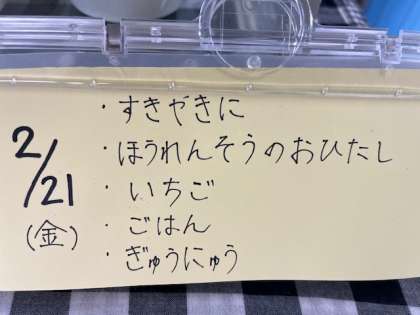 2/21
(金)
・すきやきに
・ほうれんそうのおひたし
・いちご
・ごはん
・ぎゅうにゅう